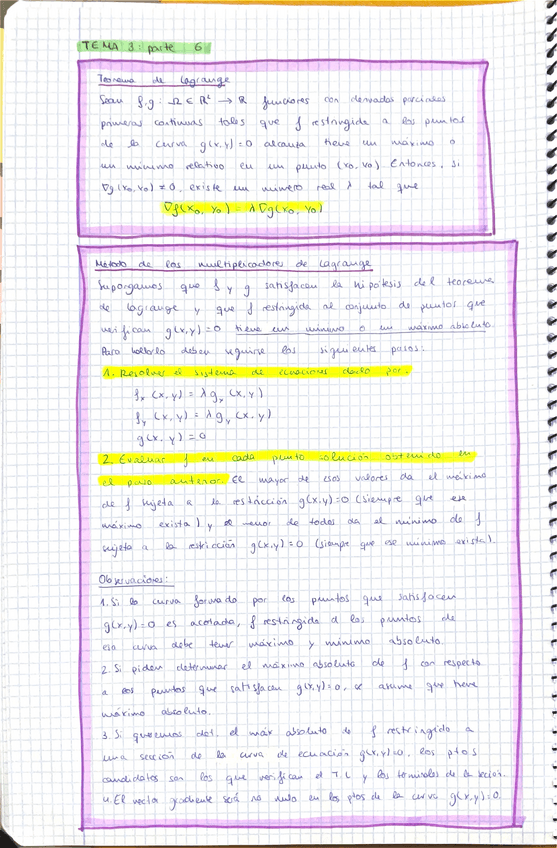 TEMA 3: parte 6
Teorema de Lagrange
Sean f,g: Ω ⊆ R² → R funciones con derivadas parciales
primeras continuas tales que f restringida a los puntos
de la curva g(x,y)=0 alcanza tiene un máximo o
un mínimo relativo en un punto (x₀, y₀). Entonces, si
∇g(x₀, y₀) ≠ 0, existe un número real λ tal que
∇f(x₀, y₀) = λ ∇g(x₀, y₀)
Método de los multiplicadores de Lagrange
Supongamos que f y g satisfacen la hipótesis del teorema
de Lagrange y que f restringida al conjunto de puntos que
verifican g(x,y)=0 tiene un mínimo o un máximo absoluto.
Para hallarlo deben seguirse los siguientes pasos:
1. Resolver el sistema de ecuaciones dado por:
fₓ (x,y) = λ gₓ (x,y)
fᵧ (x,y) = λ gᵧ (x,y)
g(x,y) = 0
2. Evaluar f en cada punto solución obtenido en
el paso anterior. El mayor de esos valores da el máximo
de f sujeta a la restricción g(x,y)=0 (siempre que ese
máximo exista) y el menor de todos da el mínimo de f
sujeta a la restricción g(x,y)=0 (siempre que ese mínimo exista).
Observaciones:
1. Si la curva formada por los puntos que satisfacen
g(x,y)=0 es acotada, f restringida a los puntos de
esa curva debe tener máximo y mínimo absoluto.
2. Si piden determinar el máximo absoluto de f con respecto
a los puntos que satisfacen g(x,y)=0, se asume que tiene
máximo absoluto.
3. Si queremos det. el máx absoluto de f restringido a
una sección de la curva de ecuación g(x,y)=0, los ptos
candidatos son los que verifican el T.L y los terminales de la sección.
4. El vector gradiente será no nulo en los ptos de la curva g(x,y)=0.